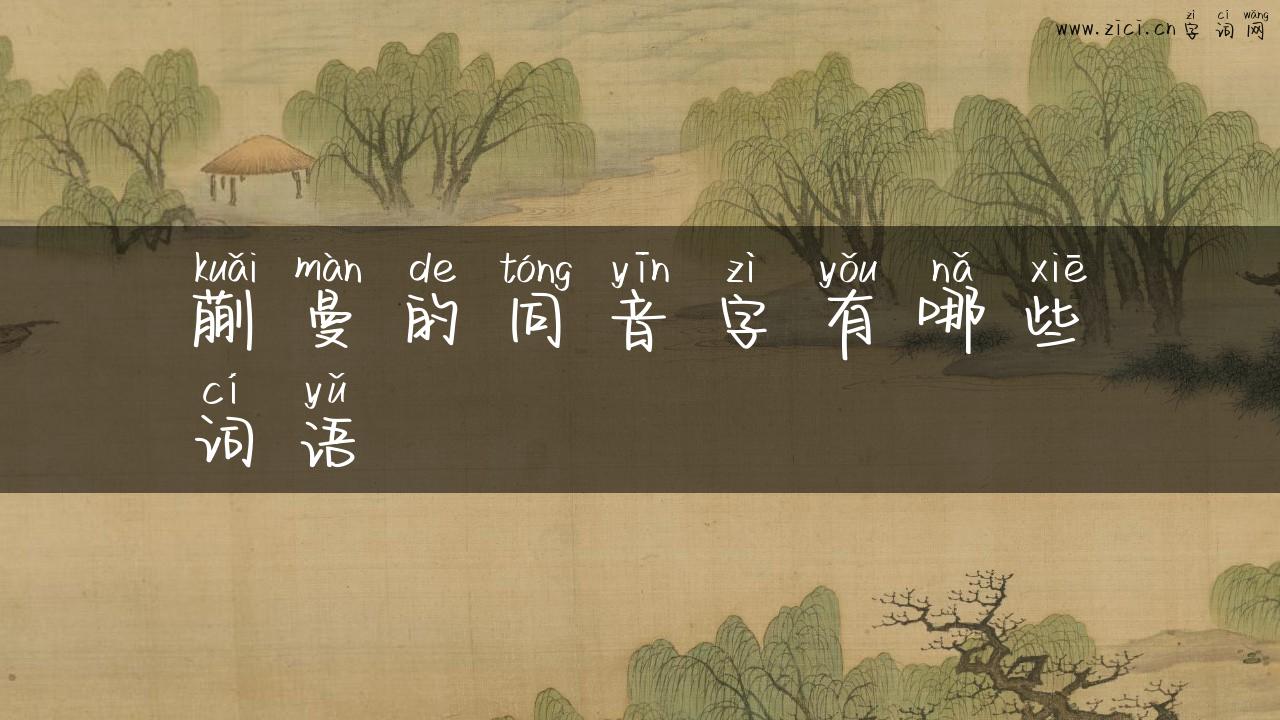 zì cí wǎng
www.zici.cn 字 词 网
kuǎi màn de tóng yīn zì yǒu nǎ xiē
蒯 曼 的 同 音 字 有 哪 些
cí yǔ
词 语